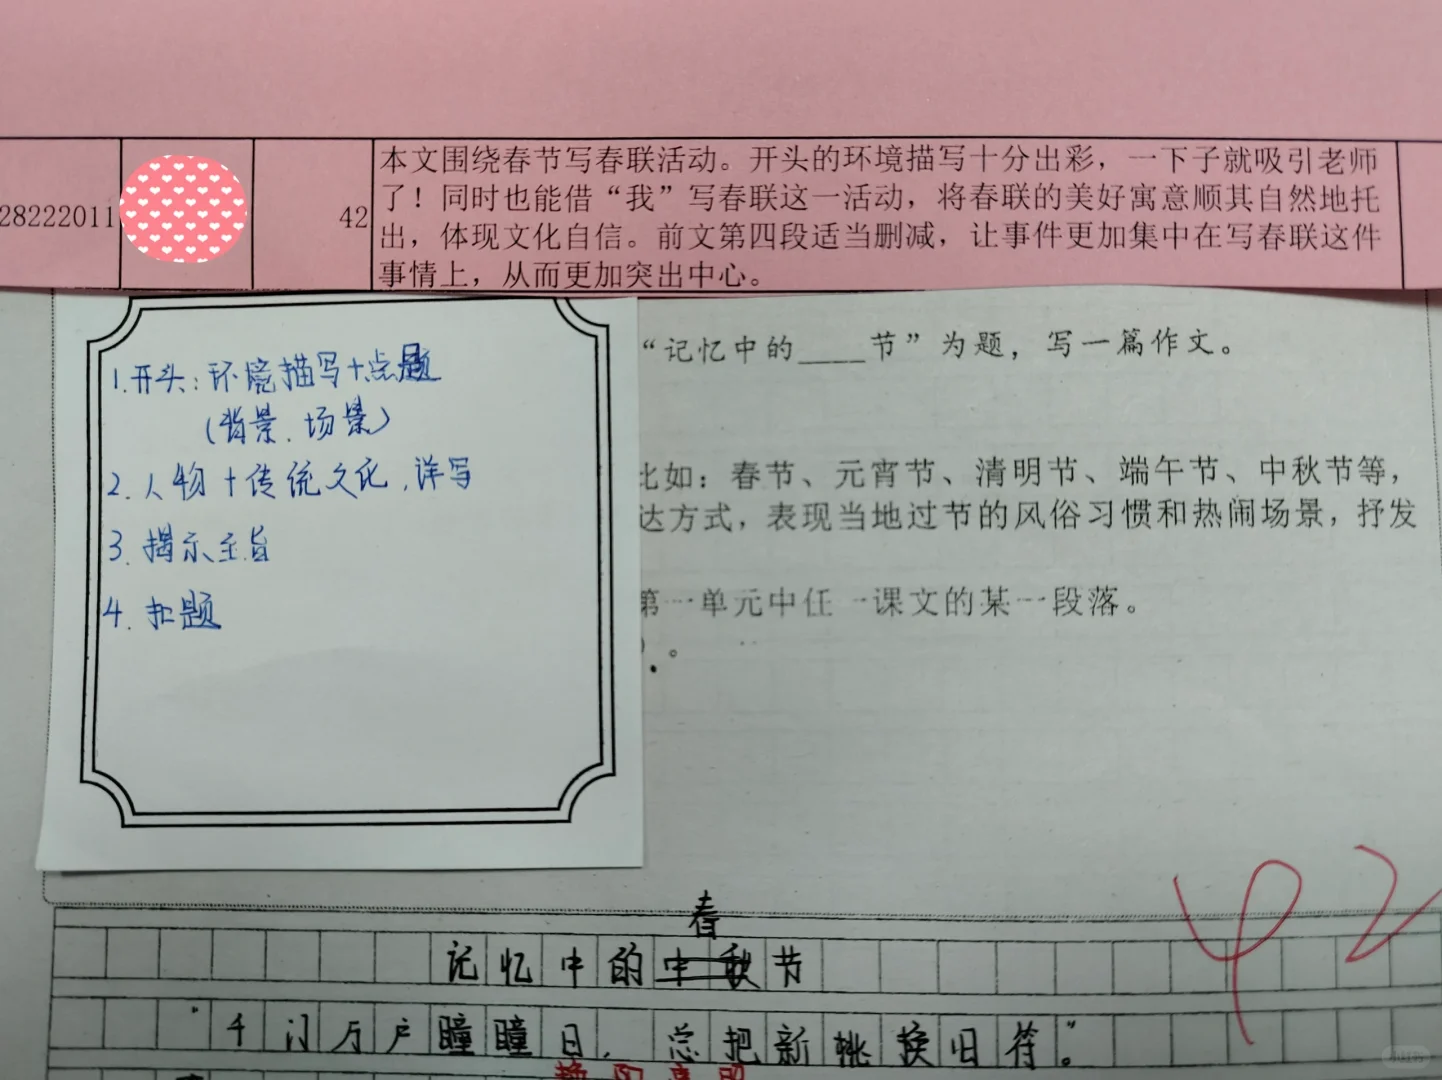 28222011
42
本文围绕春节写春联活动。开头的环境描写十分出彩，一下子就吸引老师
了！同时也能借“我”写春联这一活动，将春联的美好寓意顺其自然地托
出，体现文化自信。前文第四段适当删减，让事件更加集中在写春联这件
事情上，从而更加突出中心。
1.开头：环境描写+点题
（背景、场景）
2.人物+传统文化，详写
3.揭示主旨
4.扣题
“记忆中的____节”为题，写一篇作文。
比如：春节、元宵节、清明节、端午节、中秋节等，
达方式，表现当地过节的风俗习惯和热闹场景，抒发
第一单元中任一课文的某一段落。
）。
42
春
记忆中的中秋节
“千门万户瞳瞳日，总把新桃换旧符。”